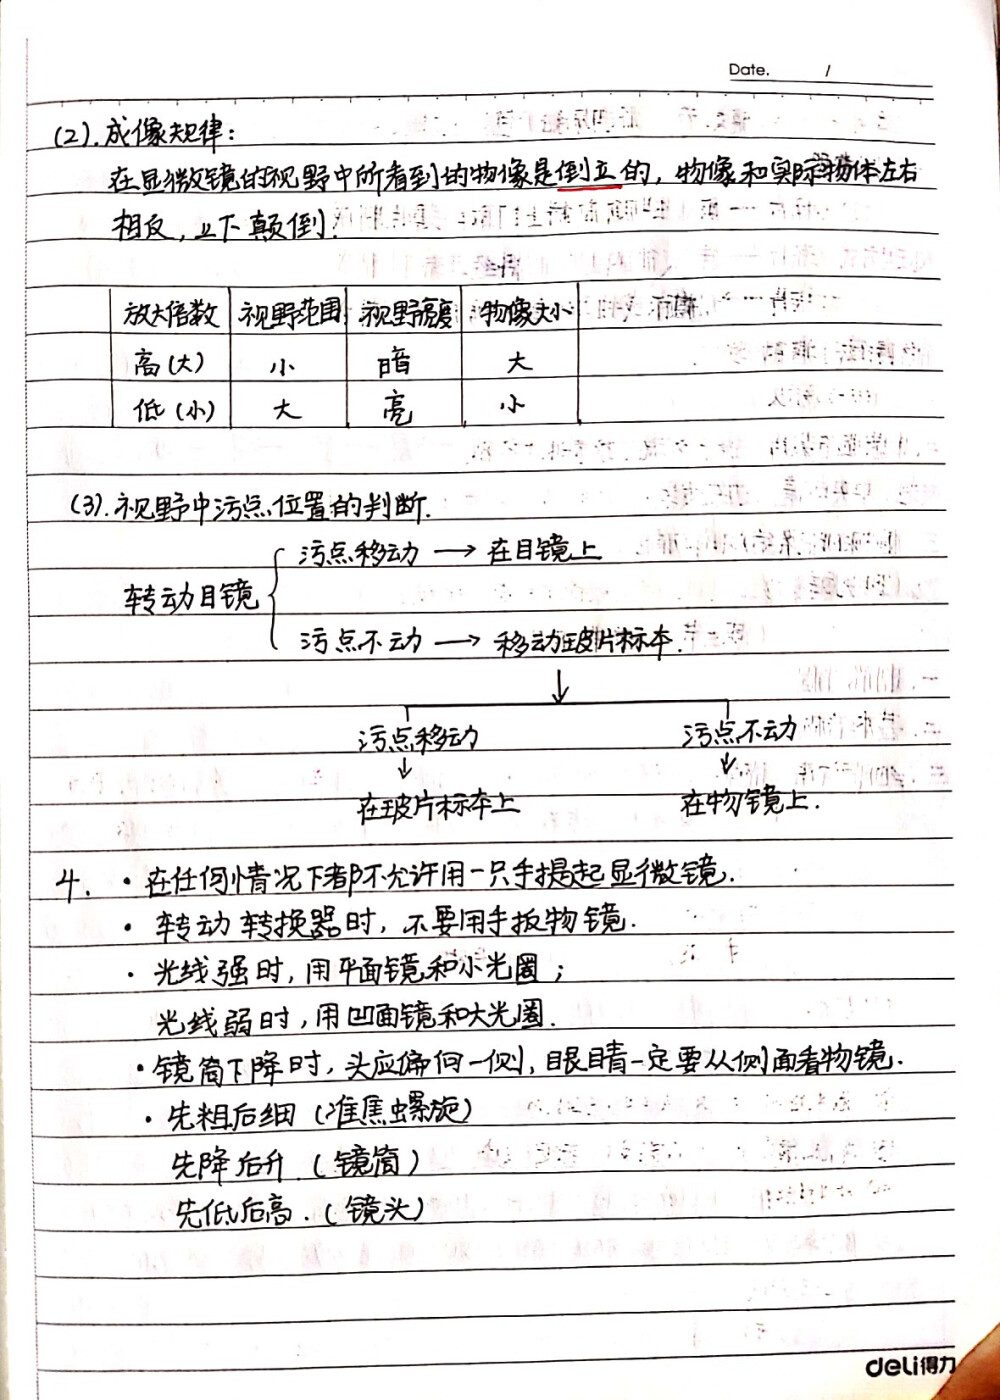 Date. /
(2).成像规律:
在显微镜的视野中所看到的物像是倒立的,物像和实际物体左右
相反,上下颠倒.
放大倍数 视野范围 视野亮度 物像大小
高(大) 小 暗 大
低(小) 大 亮 小
(3).视野中污点位置的判断.
污点移动 → 在目镜上
转动目镜
污点不动 → 移动玻片标本.
污点移动 污点不动
在玻片标本上 在物镜上.
4. ·在任何情况下都不允许用一只手提起显微镜.
·转动转换器时,不要用手扳物镜.
·光线强时,用平面镜和小光圈;
光线弱时,用凹面镜和大光圈.
·镜筒下降时,头应偏向一侧,眼睛一定要从侧面看物镜.
·先粗后细(准焦螺旋)
先降后升.(镜筒)
先低后高.(镜头)
deli得力